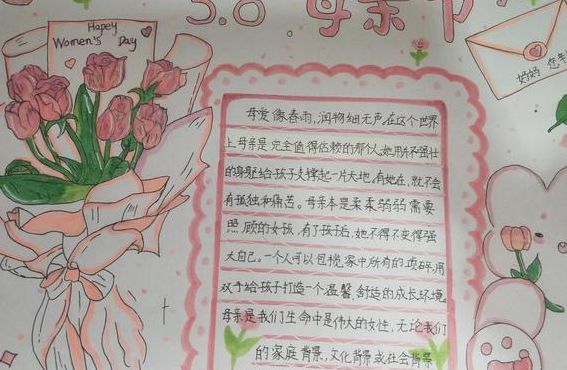 Hapey
Women's Day
3.8.母亲节
妈妈 您辛
母爱像春雨,润物细无声,在这个世界
上母亲是完全值得依赖的那个人,她用不强壮
的身躯给孩子支撑起一片天地,有她在,就不会
有孤独和痛苦。母亲本是柔柔弱弱需要
照顾的女孩,有了孩子后,她不得不变得强
大自己。一个人可以包揽家中所有的琐碎,用
双手给孩子打造一个温馨、舒适的成长环境,
母亲是我们生命中是伟大的女性,无论我们
的家庭背景,文化背景或社会背景